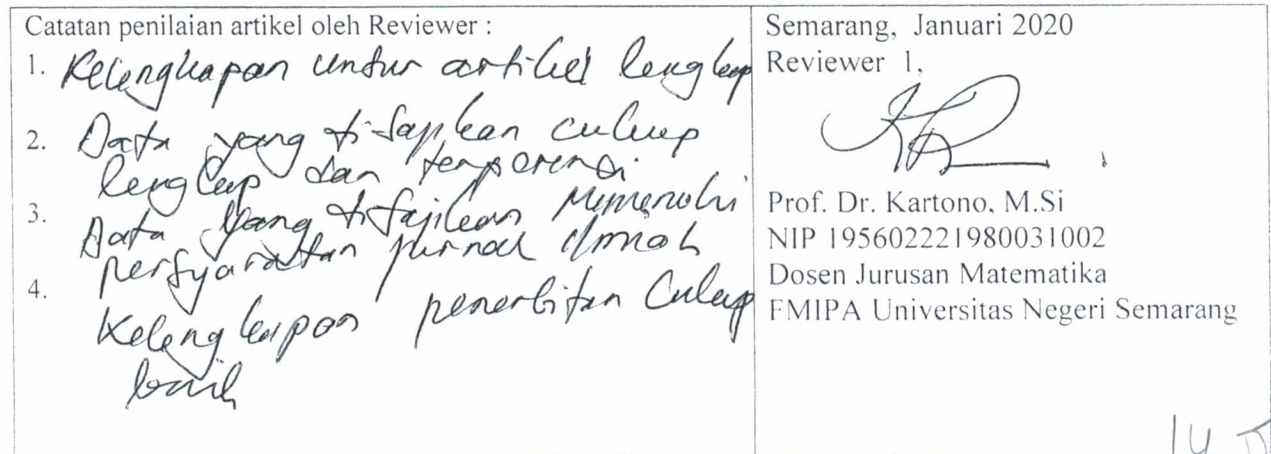 Catatan penilaian artikel oleh Reviewer :
1. Kelengkapan unsur artikel lengkap
2. Data yang disajikan cukup
lengkap dan
3. Data yang disajikan memenuhi
persyaratan jurnal ilmiah
4. Kelengkapan penerbitan cukup
baik
Semarang, Januari 2020
Reviewer 1,
Prof. Dr. Kartono, M.Si
NIP 195602221980031002
Dosen Jurusan Matematika
FMIPA Universitas Negeri Semarang
14